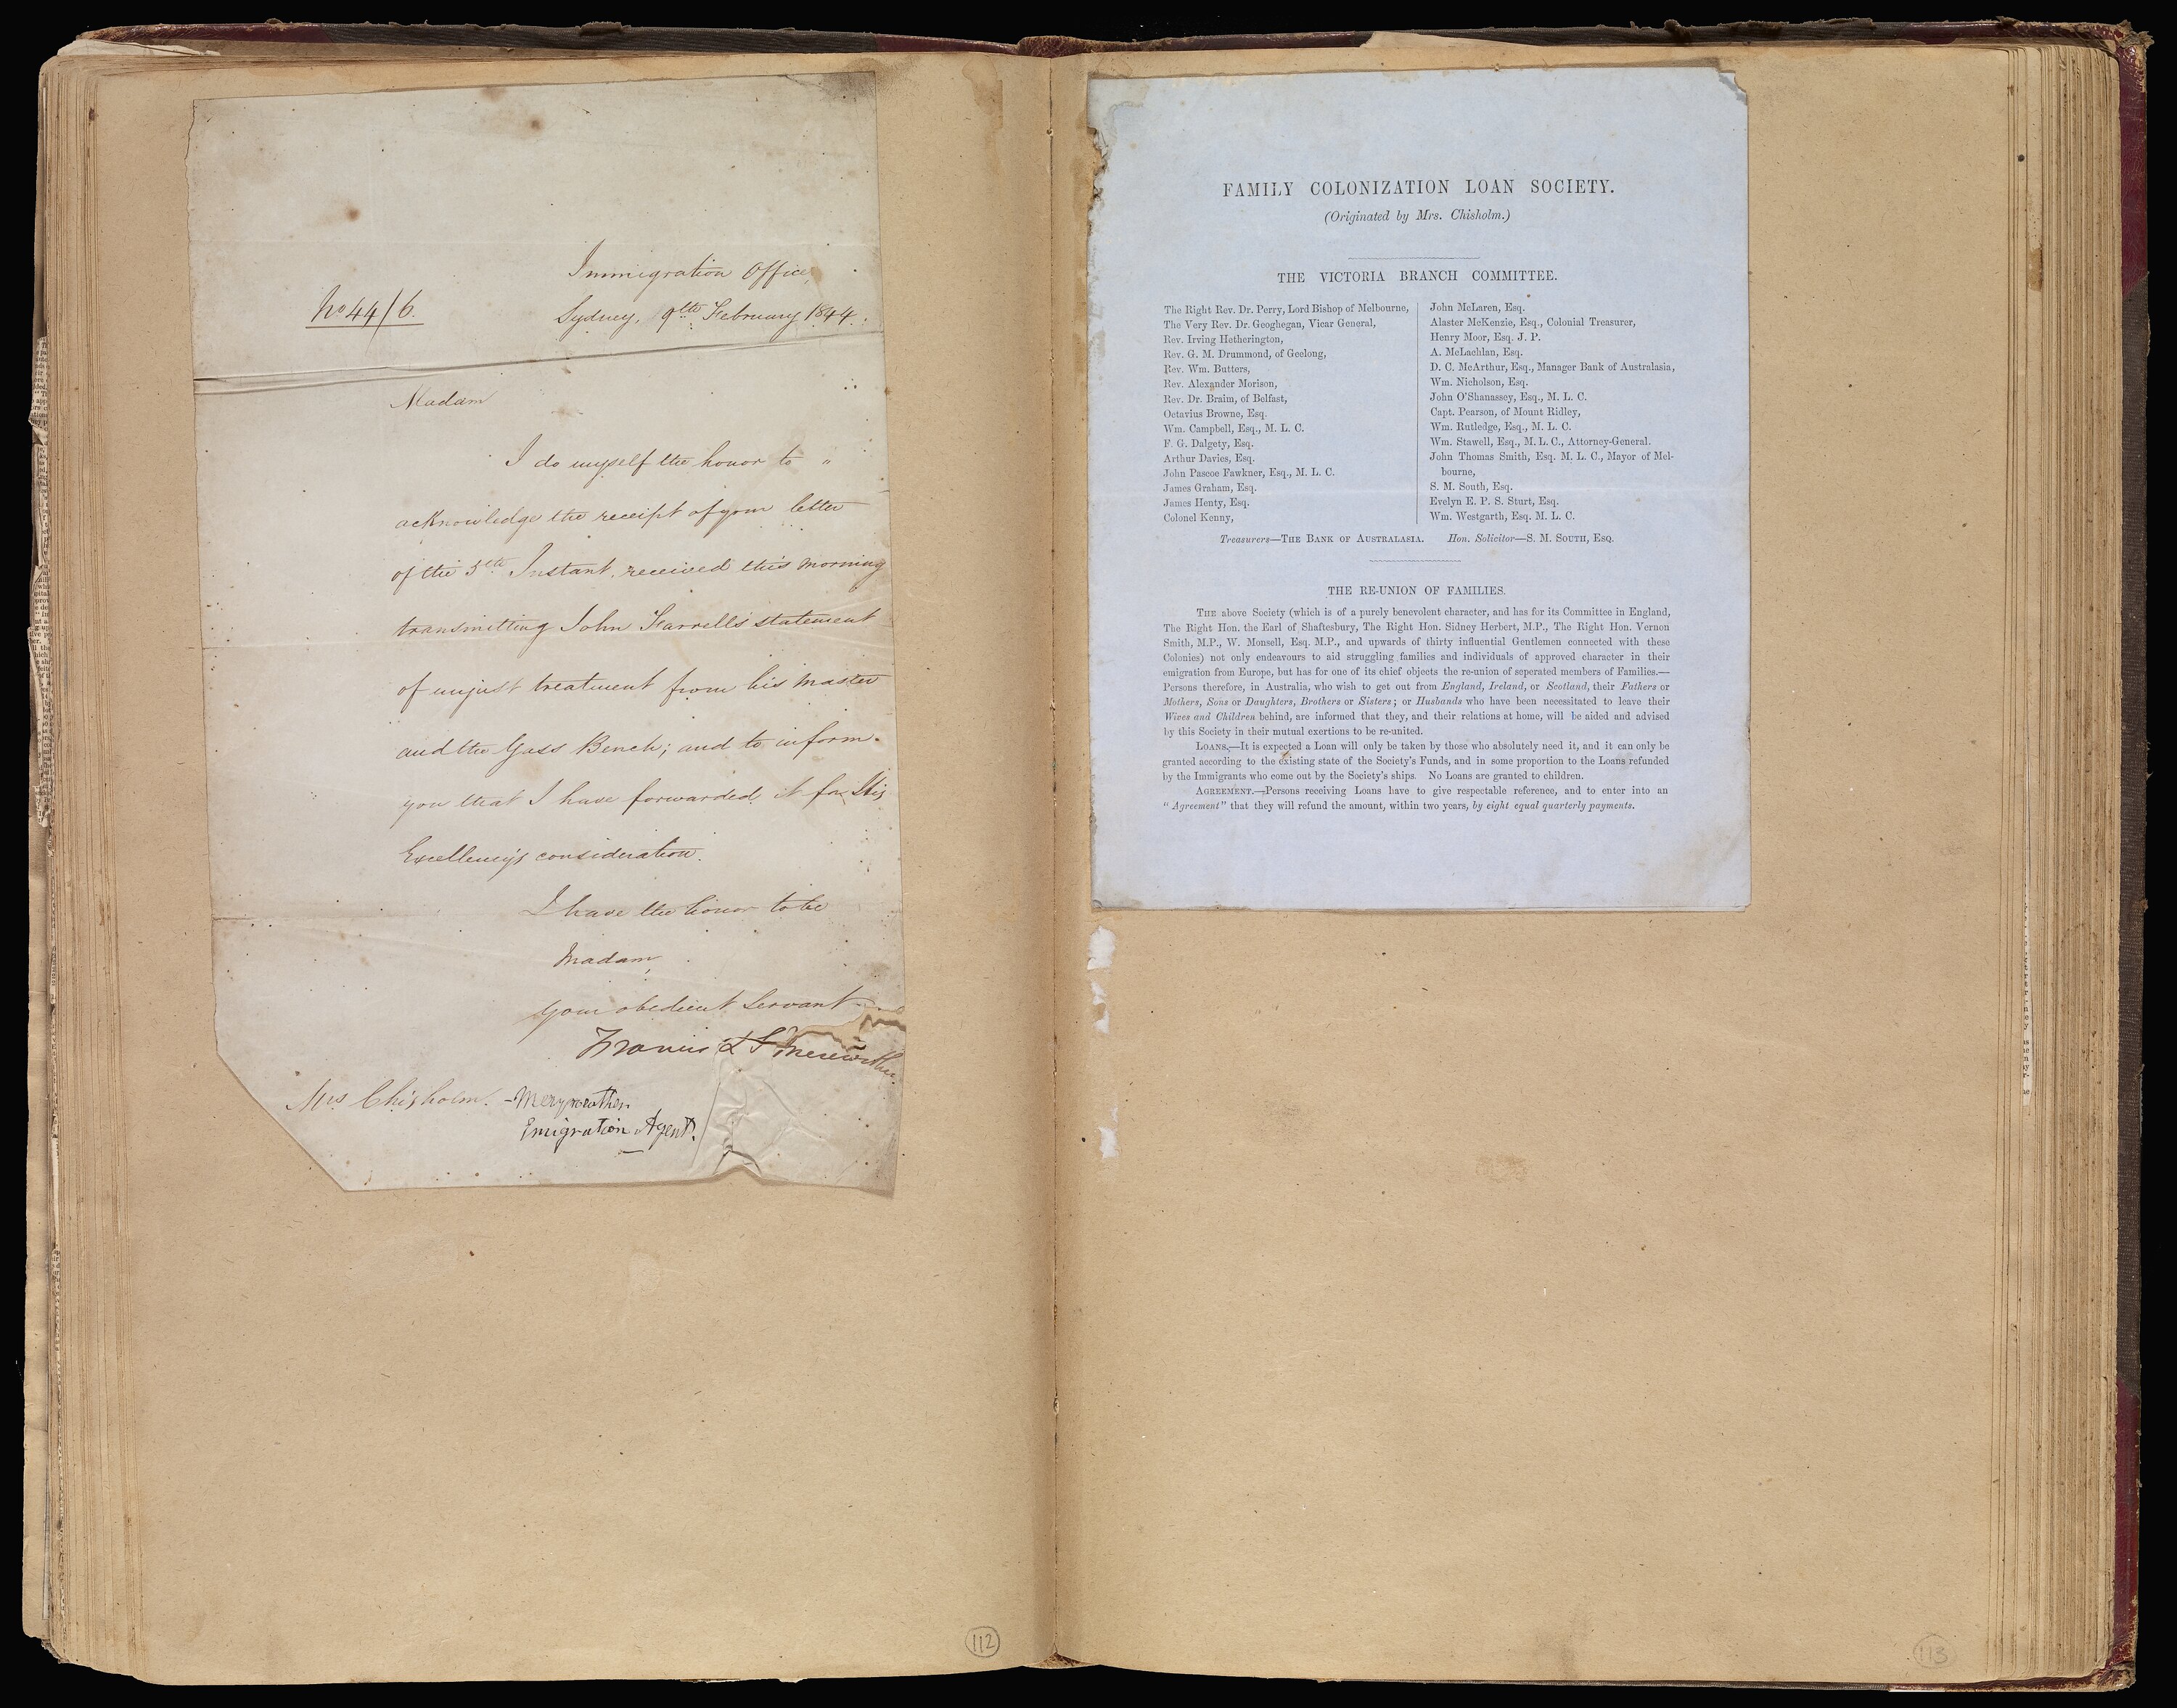 Immigration Office,
No 44/6.
Sydney, 9th February 1844.
Madam
I do myself the honor to "
acknowledge the receipt of your letter
of the 5th Instant, received this morning
transmitting John Farrell's statement
of unjust treatment from his Master
and the Yass Bench; and to inform
you that I have forwarded it for His
Excellency's consideration.
I have the honor to be
Madam,
Your obedient Servant
Francis L S Merewether.
Mrs Chisholm. - Meryweather
Emigration Agent.
112
FAMILY COLONIZATION LOAN SOCIETY.
(Originated by Mrs. Chisholm.)
THE VICTORIA BRANCH COMMITTEE.
The Right Rev. Dr. Perry, Lord Bishop of Melbourne,
The Very Rev. Dr. Geoghegan, Vicar General,
Rev. Irving Hetherington,
Rev. G. M. Drummond, of Geelong,
Rev. Wm. Butters,
Rev. Alexander Morison,
Rev. Dr. Braim, of Belfast,
Octavius Browne, Esq.
Wm. Campbell, Esq., M. L. C.
F. G. Dalgety, Esq.
Arthur Davies, Esq.
John Pascoe Fawkner, Esq., M. L. C.
James Graham, Esq.
James Henty, Esq.
Colonel Kenny,
John McLaren, Esq.
Alaster McKenzie, Esq., Colonial Treasurer,
Henry Moor, Esq. J. P.
A. McLachlan, Esq.
D. C. McArthur, Esq., Manager Bank of Australasia,
Wm. Nicholson, Esq.
John O'Shanassey, Esq., M. L. C.
Capt. Pearson, of Mount Ridley,
Wm. Rutledge, Esq., M. L. C.
Wm. Stawell, Esq., M. L. C., Attorney-General.
John Thomas Smith, Esq. M. L. C., Mayor of Mel-
bourne,
S. M. South, Esq.
Evelyn E. P. S. Sturt, Esq.
Wm. Westgarth, Esq. M. L. C.
Treasurers—THE BANK OF AUSTRALASIA. Hon. Solicitor—S. M. SOUTH, ESQ.
THE RE-UNION OF FAMILIES.
THE above Society (which is of a purely benevolent character, and has for its Committee in England,
The Right Hon. the Earl of Shaftesbury, The Right Hon. Sidney Herbert, M.P., The Right Hon. Vernon
Smith, M.P., W. Monsell, Esq. M.P., and upwards of thirty influential Gentlemen connected with these
Colonies) not only endeavours to aid struggling families and individuals of approved character in their
emigration from Europe, but has for one of its chief objects the re-union of seperated members of Families.—
Persons therefore, in Australia, who wish to get out from England, Ireland, or Scotland, their Fathers or
Mothers, Sons or Daughters, Brothers or Sisters; or Husbands who have been necessitated to leave their
Wives and Children behind, are informed that they, and their relations at home, will be aided and advised
by this Society in their mutual exertions to be re-united.
LOANS,—It is expected a Loan will only be taken by those who absolutely need it, and it can only be
granted according to the existing state of the Society's Funds, and in some proportion to the Loans refunded
by the Immigrants who come out by the Society's ships. No Loans are granted to children.
AGREEMENT.—Persons receiving Loans have to give respectable reference, and to enter into an
"Agreement" that they will refund the amount, within two years, by eight equal quarterly payments.
113